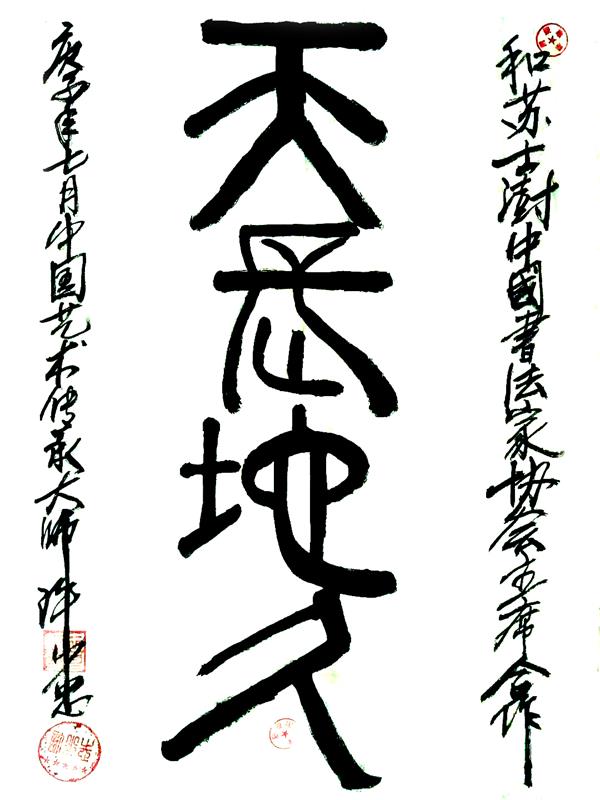 和苏士澍中國書法家协会主席合作
天長地久
庚子年七月中国艺术传承大师